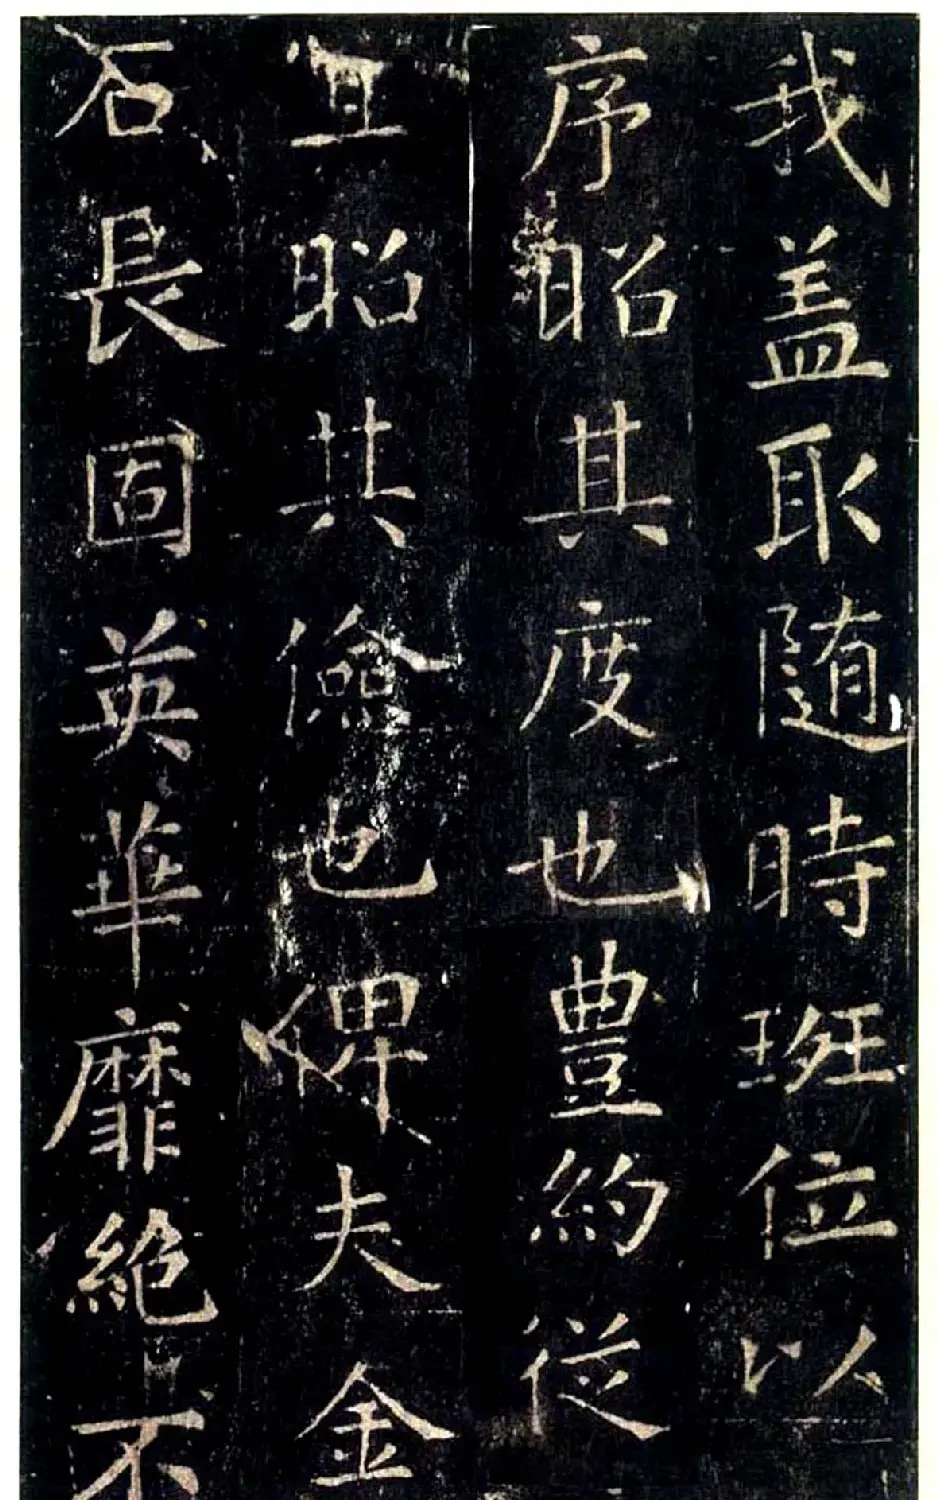 我盖取随時班位以
序昭其度也豊約従
宜昭其儉也俾夫金
石長固英華靡絶不